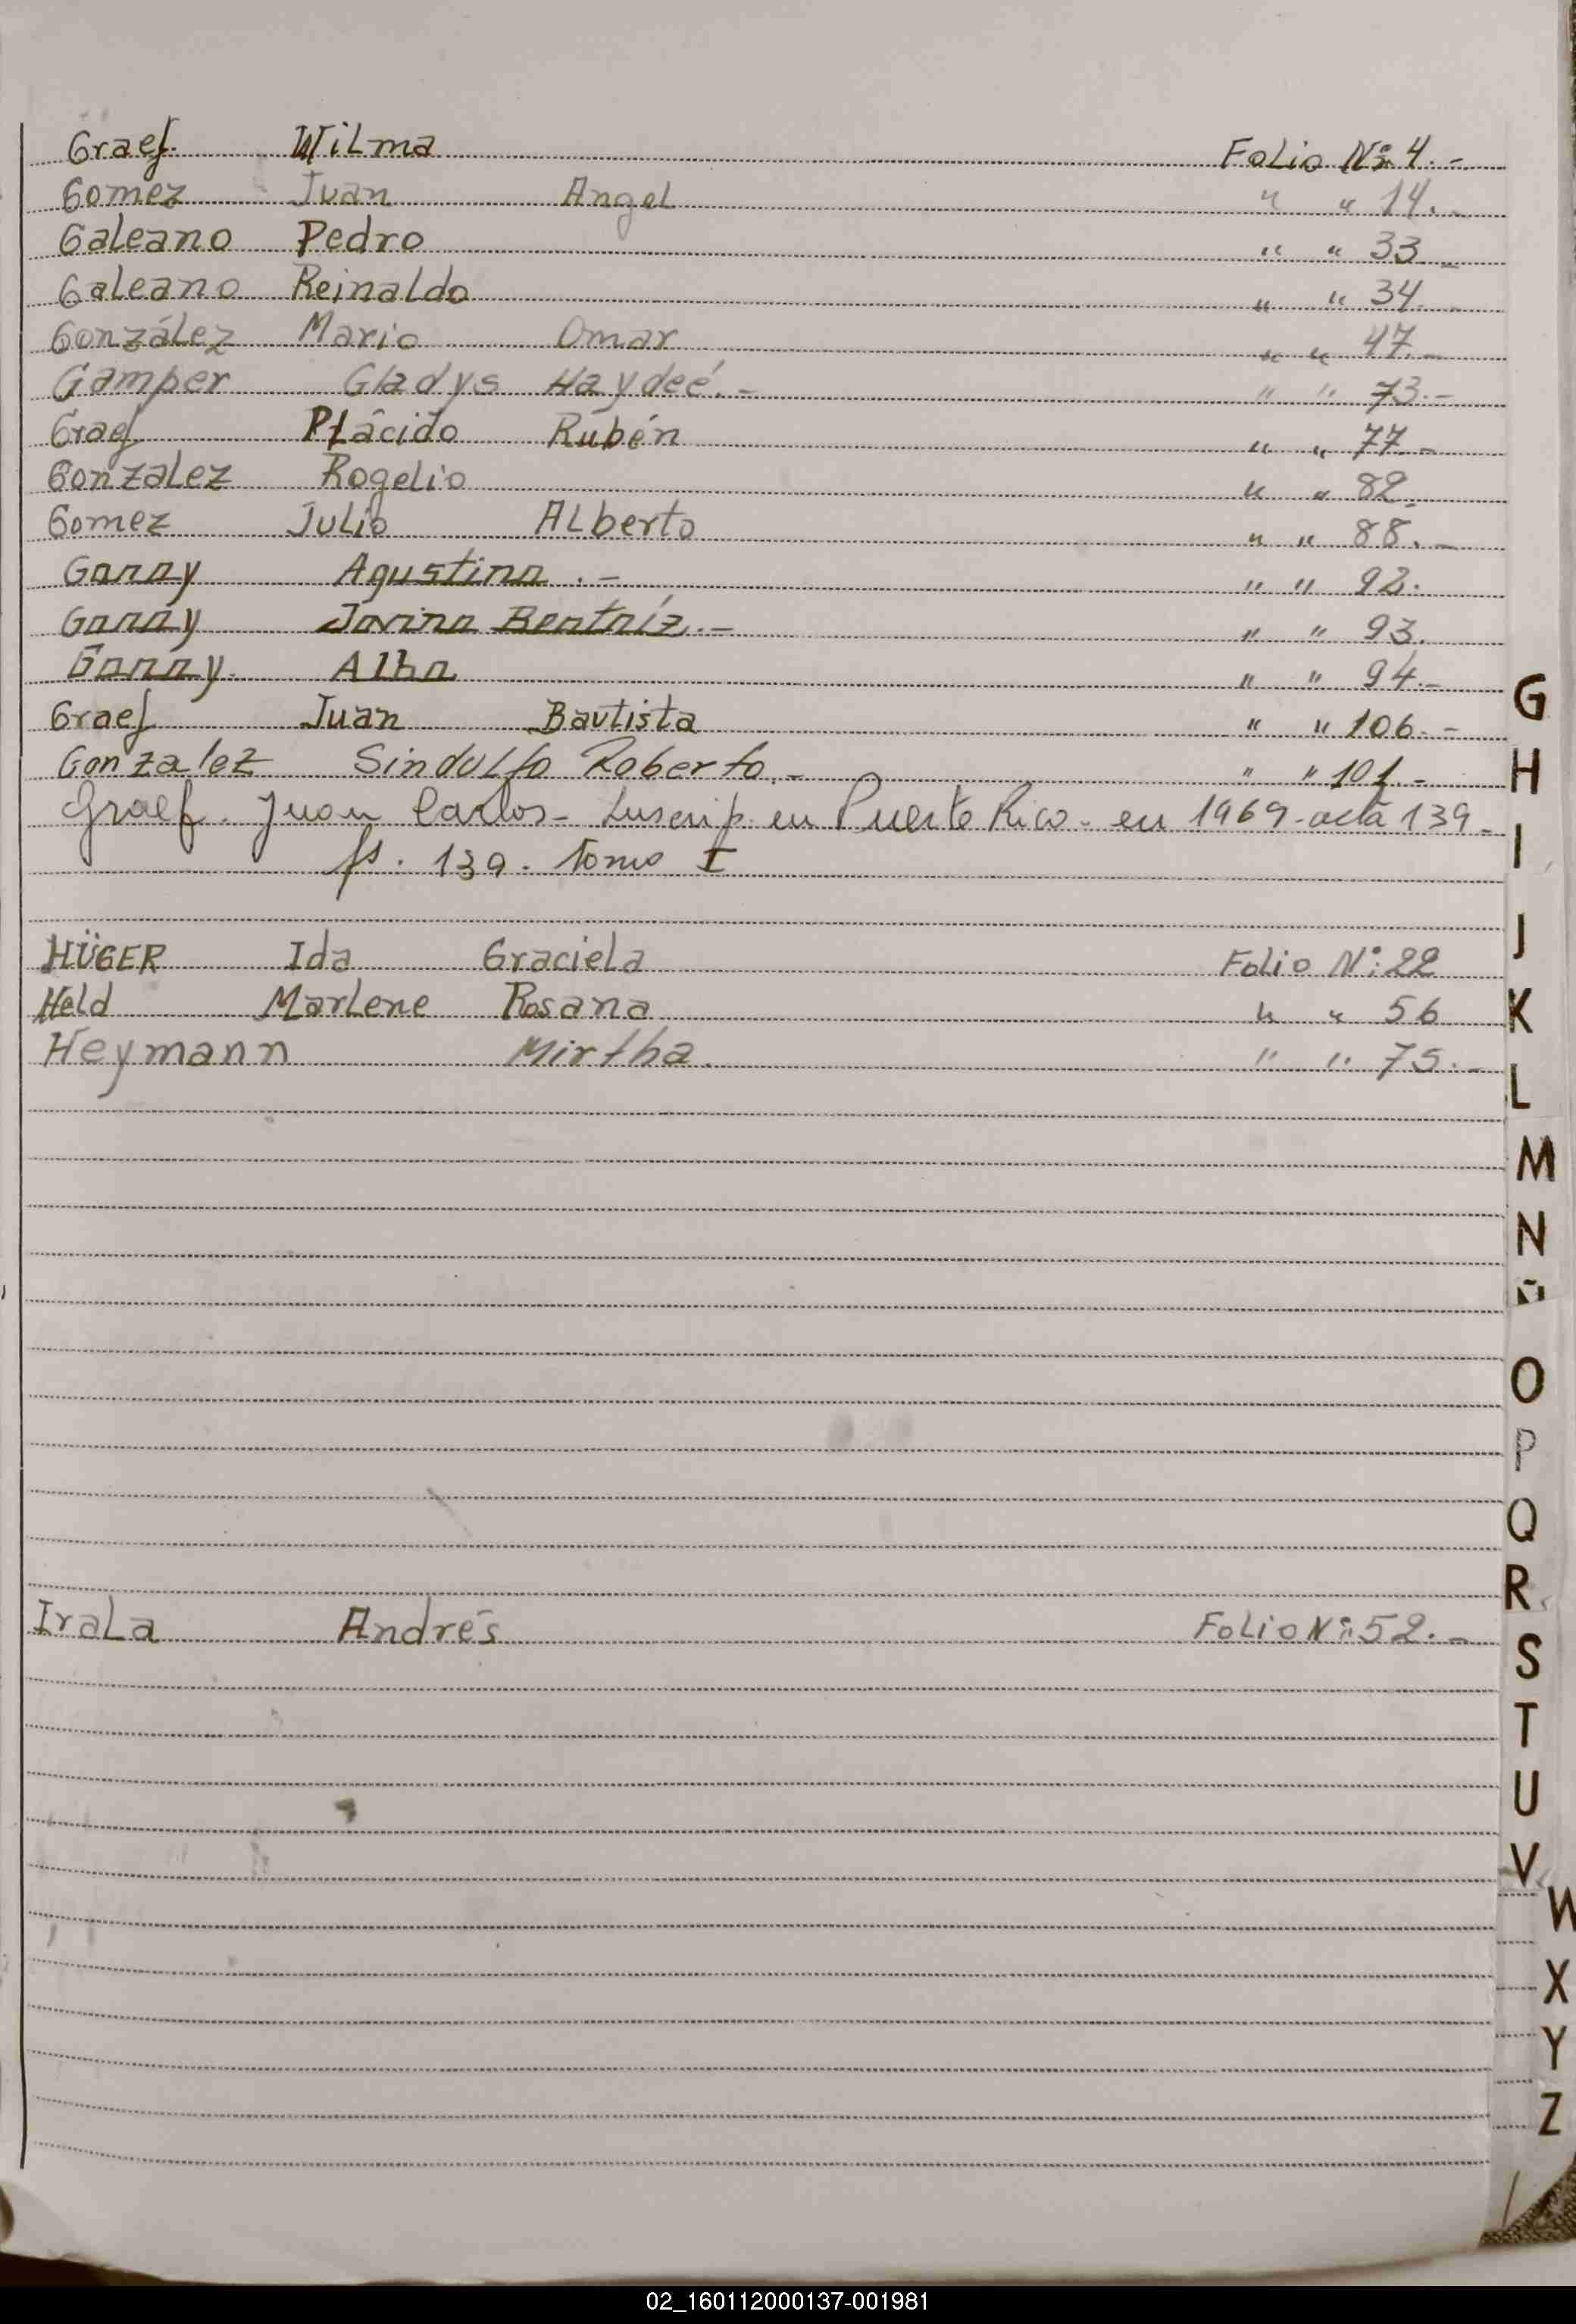 Graef. Wilma Folio Nº 4.-
Gomez Juan Angel " " 14.-
Galeano Pedro " " 33.-
Galeano Reinaldo " " 34.-
González Mario Omar " " 47.-
Gamper Gladys Haydeé.- " " 73.-
Graef Plácido Rubén " " 77.-
Gonzalez Rogelio " " 82.-
Gomez Julio Alberto " " 88.-
Garay Agustina.- " " 92.
Garay Beatríz.- " " 93.
Garay. Alba " " 94.-
Graef Juan Bautista " " 106.-
Gonzalez Sindulfo Roberto.- " " 101.-
Graef. Juan Carlos- Inscrip. en Puerto Rico- en 1969- acta 139-
fs. 139. Tomo I
HÜGER Ida Graciela Folio Nº 22
Held Marlene Rosana " " 56
Heymann Mirtha. " " 75.-
Irala Andrés Folio Nº 52.-
G
H
I
J
K
L
M
N
Ñ
O
P
Q
R
S
T
U
V
W
X
Y
Z
02_160112000137-001981